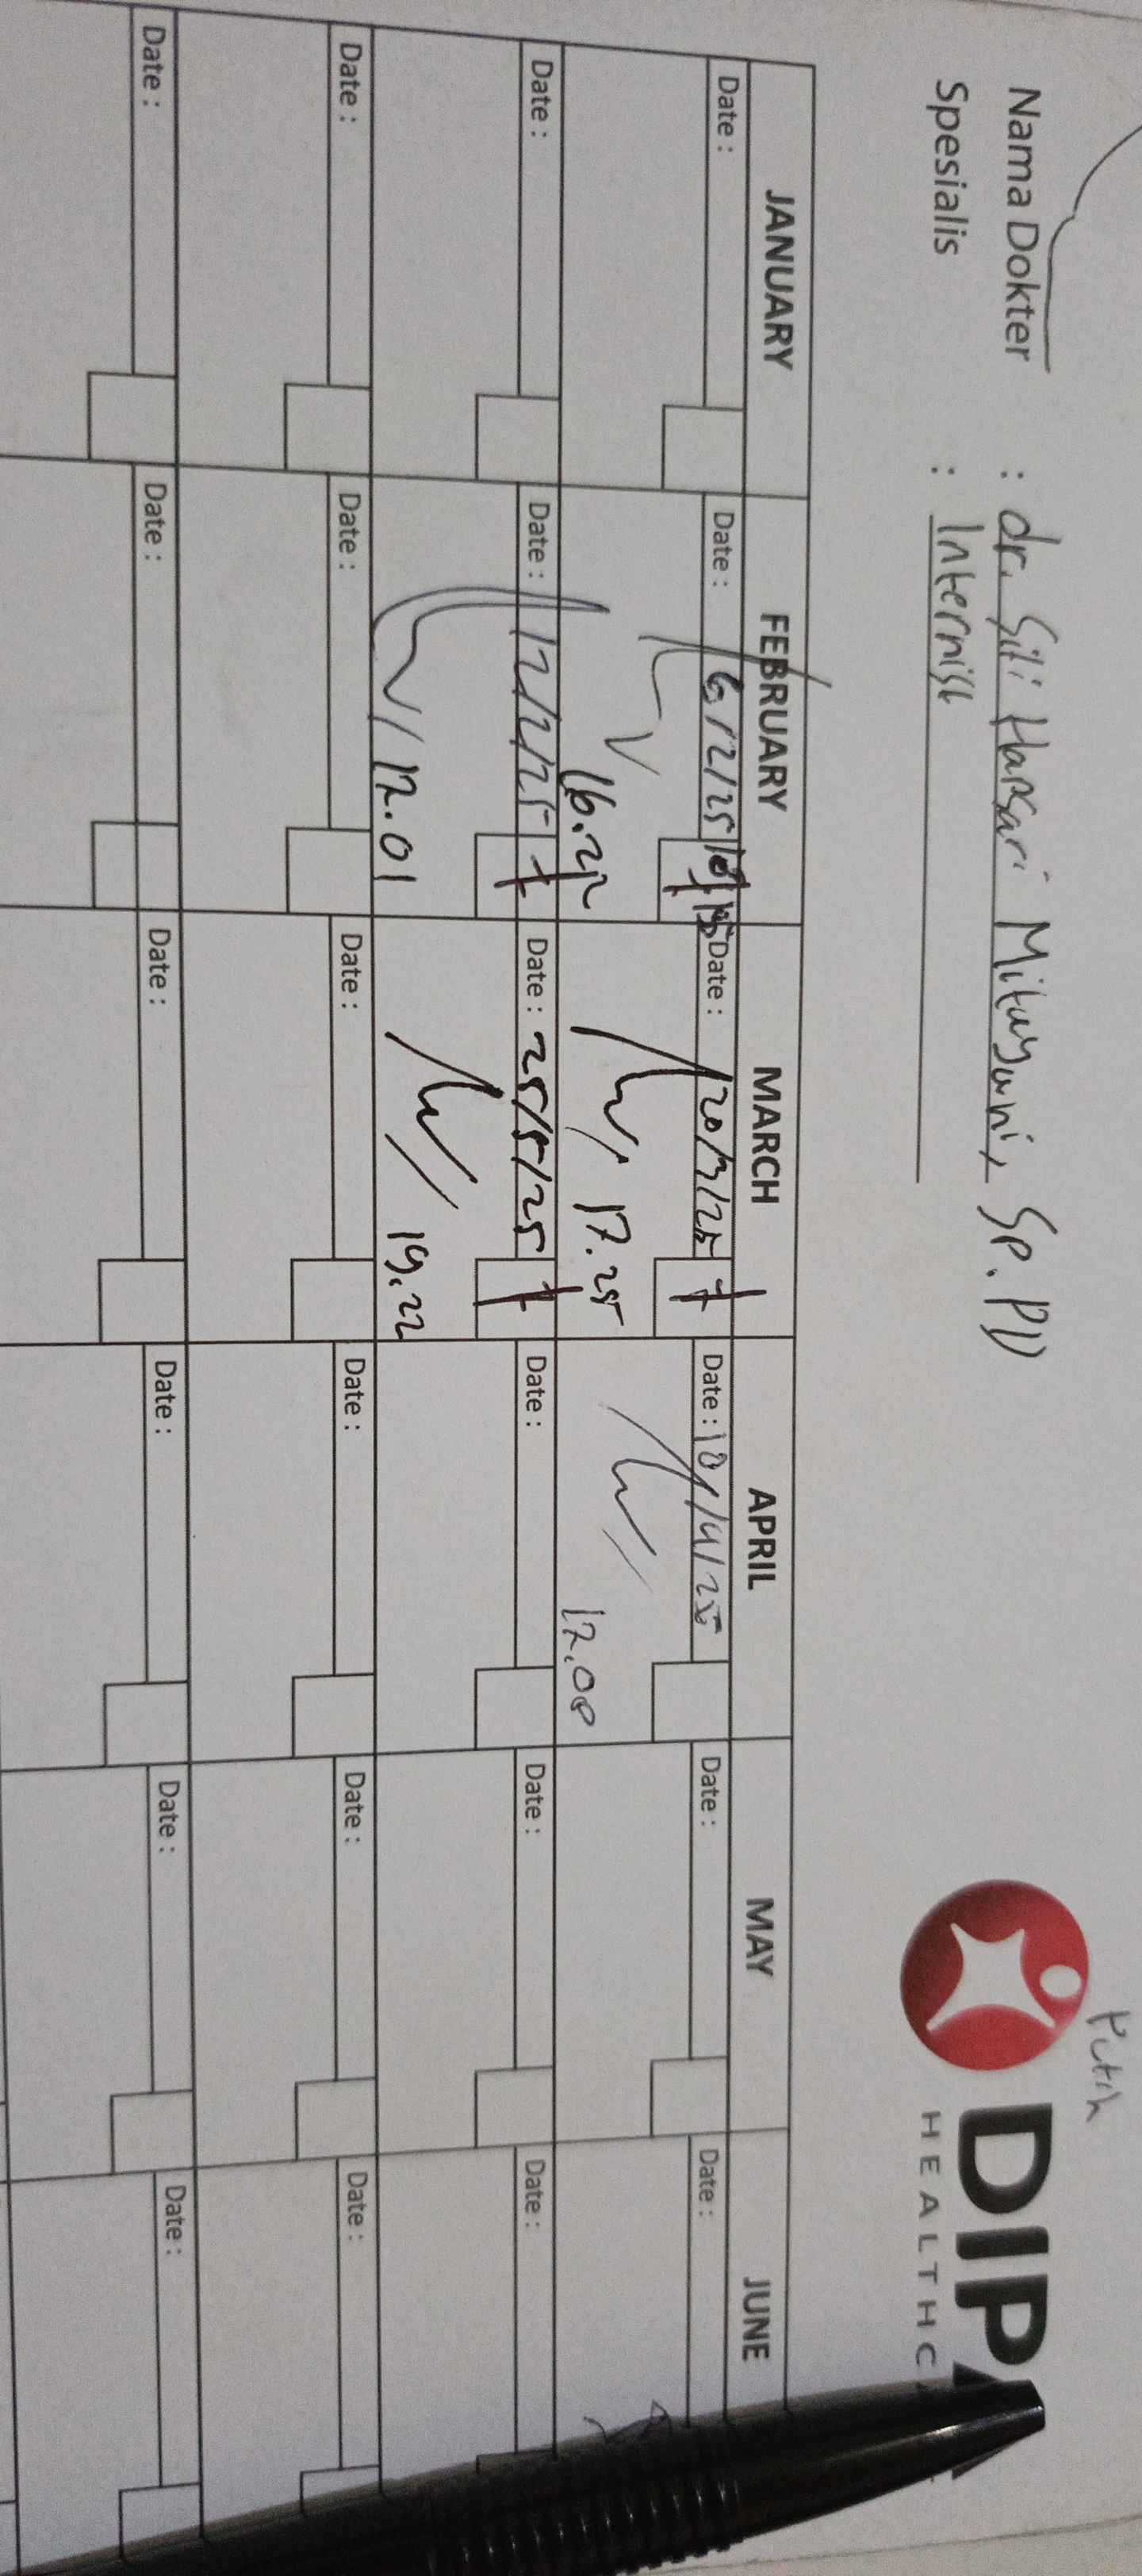 Putih
DIPA
HEALTHCA
Nama Dokter : dr. Siti Hapsari Mitayani, Sp.PD
Spesialis : Internist
JANUARY FEBRUARY MARCH APRIL MAY JUNE
Date : Date : 6/2/25 Date : 20/3/25 Date : 10/4/25 Date : Date :
16.22 17.25 17.08
Date : Date : 12/2/25 Date : 25/5/25 Date : Date : Date :
12.01 19.22
Date : Date : Date : Date : Date : Date :
Date : Date : Date : Date : Date : Date :